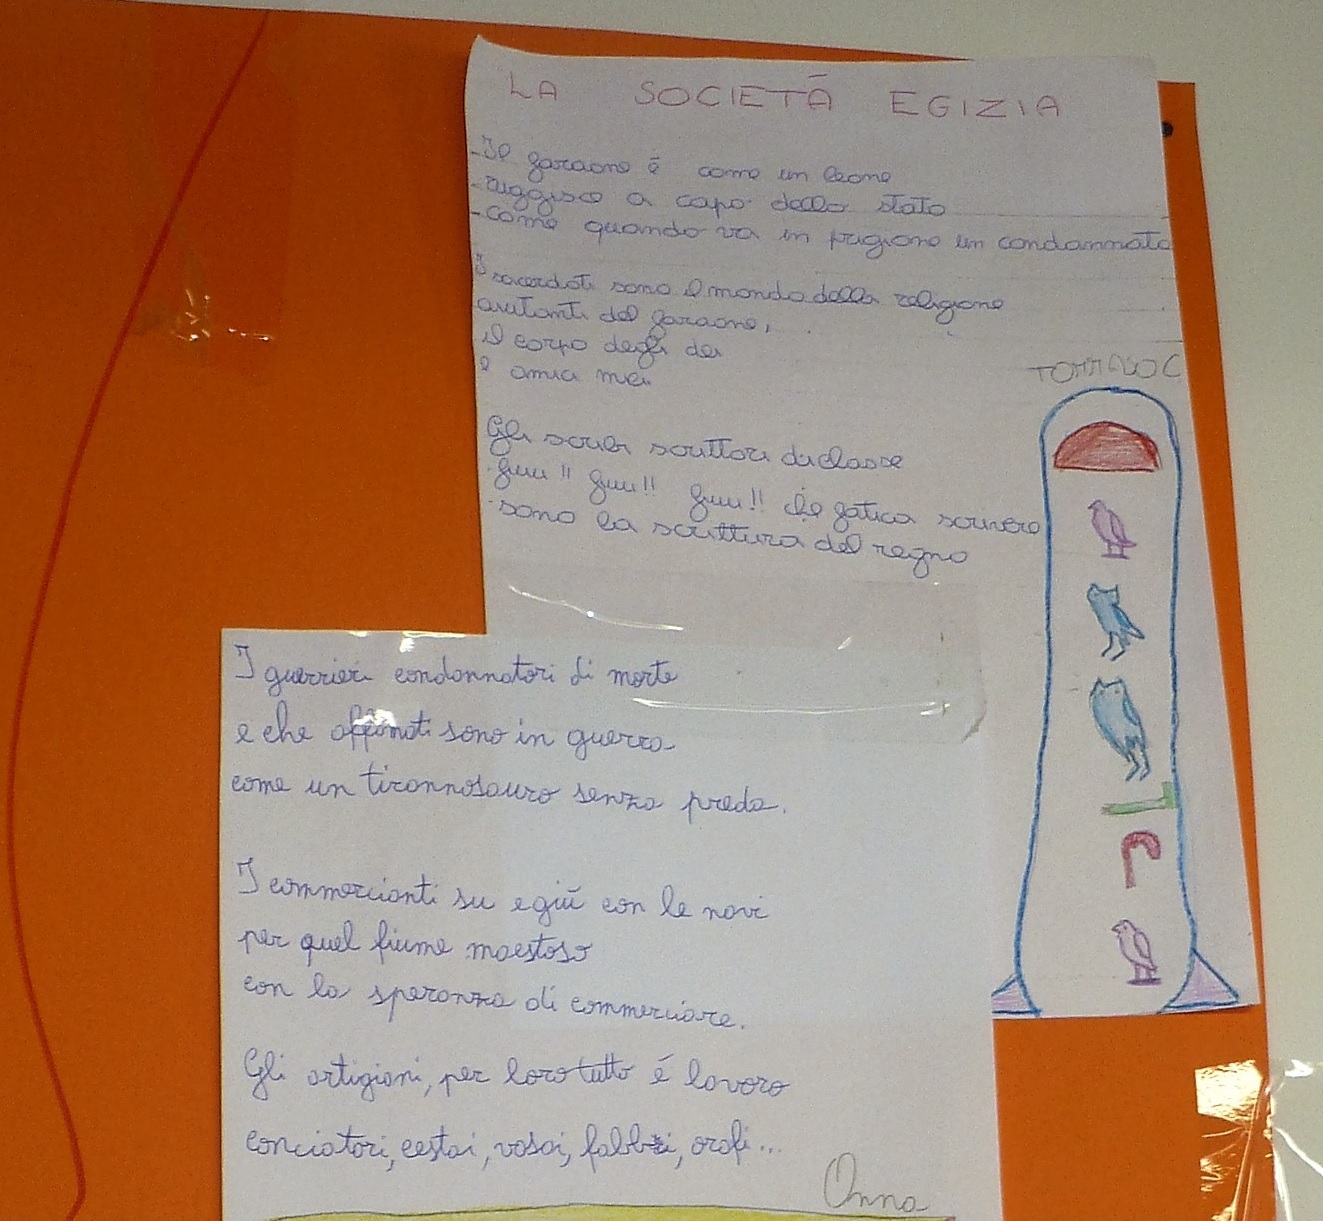 LA SOCIETÀ EGIZIA
-Il faraone è come un leone
-ruggisce a capo dello stato
-come quando va in prigione un condannato
I sacerdoti sono il mondo della religione
aiutanti del faraone,
il corpo degli dei
e amici miei
TOMMASO C
Gli scribi scrittori di classe
-fiuu!! fiuu!! fiuu!! che fatica scrivere
-sono la scrittura del regno
I guerrieri condannatori di morte
e che affamati sono in guerra
come un tirannosauro senza preda.
I commercianti su e giù con le navi
per quel fiume maestoso
con la speranza di commerciare.
Gli artigiani, per loro tutto è lavoro
conciatori, cestai, vasai, fabbri, orafi...
Anna